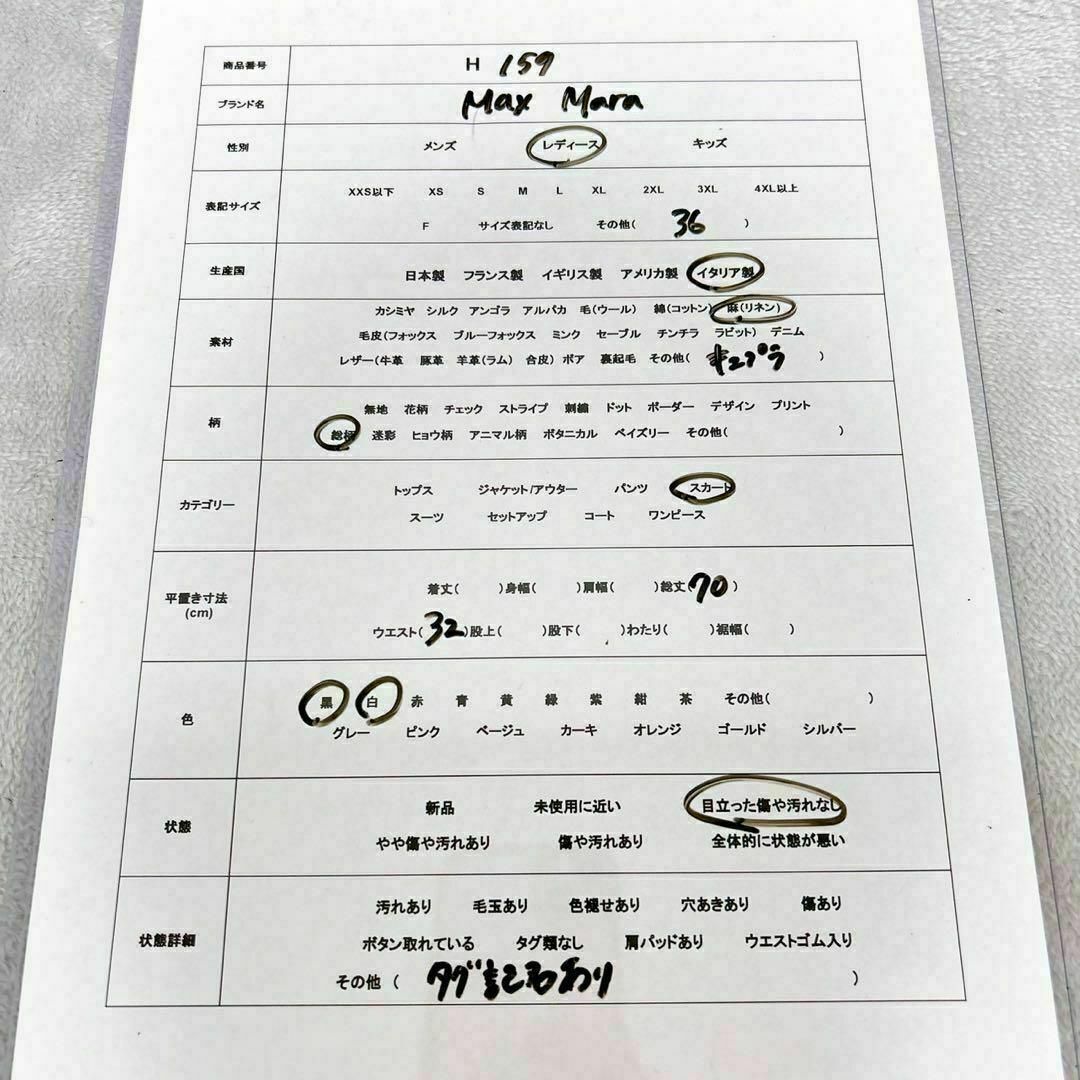 商品番号 H 159
ブランド名 Max Mara
性別 メンズ レディース キッズ
表記サイズ XXS以下 XS S M L XL 2XL 3XL 4XL以上
F サイズ表記なし その他( 36 )
生産国 日本製 フランス製 イギリス製 アメリカ製 イタリア製
素材 カシミヤ シルク アンゴラ アルパカ 毛(ウール) 綿(コットン) 麻(リネン)
毛皮(フォックス ブルーフォックス ミンク セーブル チンチラ ラビット) デニム
レザー(牛革 豚革 羊革(ラム) 合皮) ボア 裏起毛 その他( キュプラ )
柄 無地 花柄 チェック ストライプ 刺繍 ドット ボーダー デザイン プリント
総柄 迷彩 ヒョウ柄 アニマル柄 ボタニカル ペイズリー その他( )
カテゴリー トップス ジャケット/アウター パンツ スカート
スーツ セットアップ コート ワンピース
平置き寸法 (cm) 着丈( )身幅( )肩幅( )総丈( 70 )
ウエスト( 32 )股上( )股下( )わたり( )裾幅( )
色 黒 白 赤 青 黄 緑 紫 紺 茶 その他( )
グレー ピンク ベージュ カーキ オレンジ ゴールド シルバー
状態 新品 未使用に近い 目立った傷や汚れなし
やや傷や汚れあり 傷や汚れあり 全体的に状態が悪い
状態詳細 汚れあり 毛玉あり 色褪せあり 穴あきあり 傷あり
ボタン取れている タグ類なし 肩パッドあり ウエストゴム入り
その他 ( タグ記名あり )